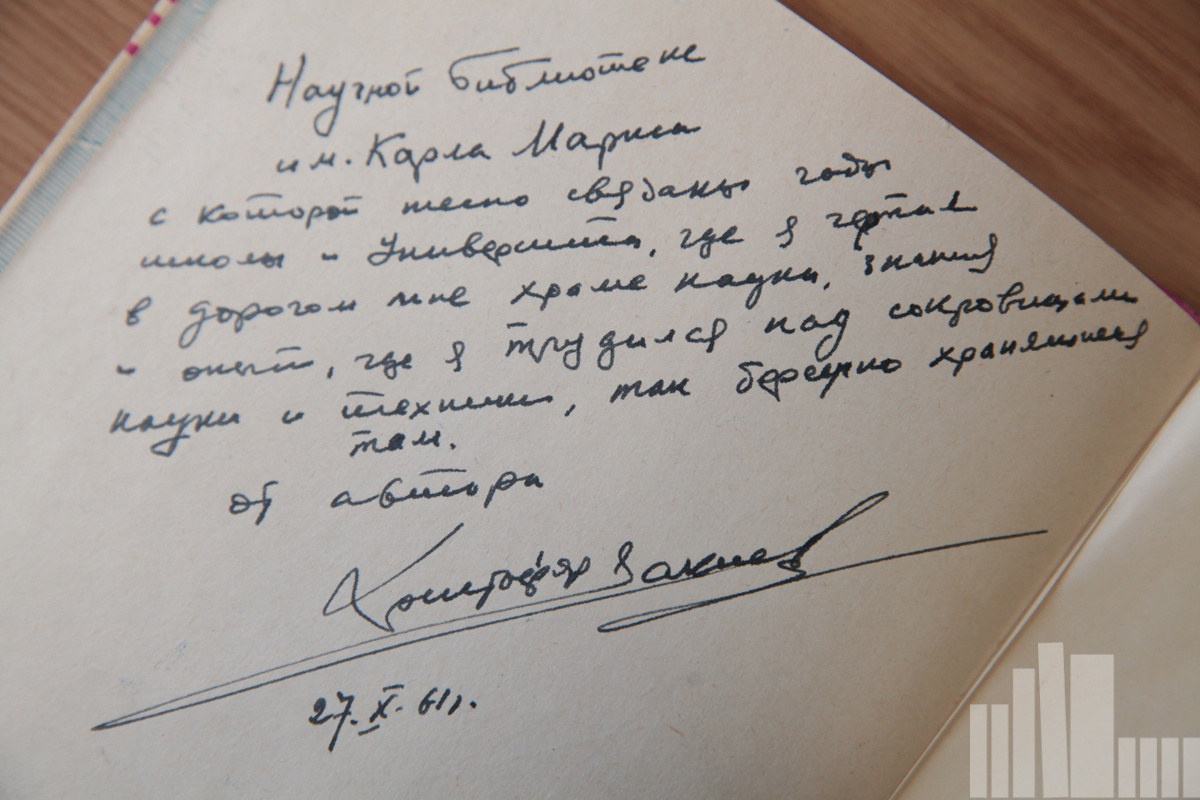 Научной библиотеке
им. Карла Маркса
с которой тесно связаны годы
школы и Университета, где я черпал
в дорогом мне храме науки, знания
и опыт, где я трудился над сокровищами
науки и техники, так бережно хранящимися
там.
от автора
27.X.61г.